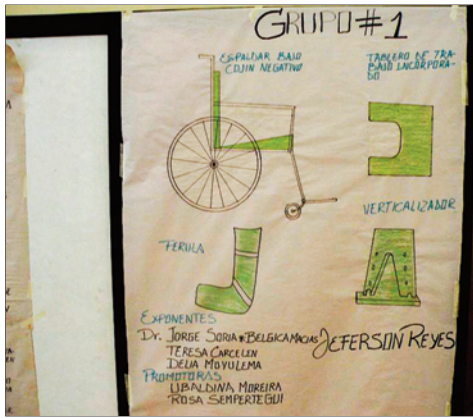 GRUPO #1
ESPALDAR BAJO
COJIN NEGATIVO
TABLERO DE TRA-
BAJO INCORPORA-
DO
VERTICALIZADOR
FERULA
EXPONENTES
Dr. JORGE SORIA * BELGICA MACIAS
JEFERSON REYES
TERESA CARCELEN
DELIA MOVULEMA
PROMOTORAS
UBALDINA MOREIRA
ROSA SEMPERTEGUI